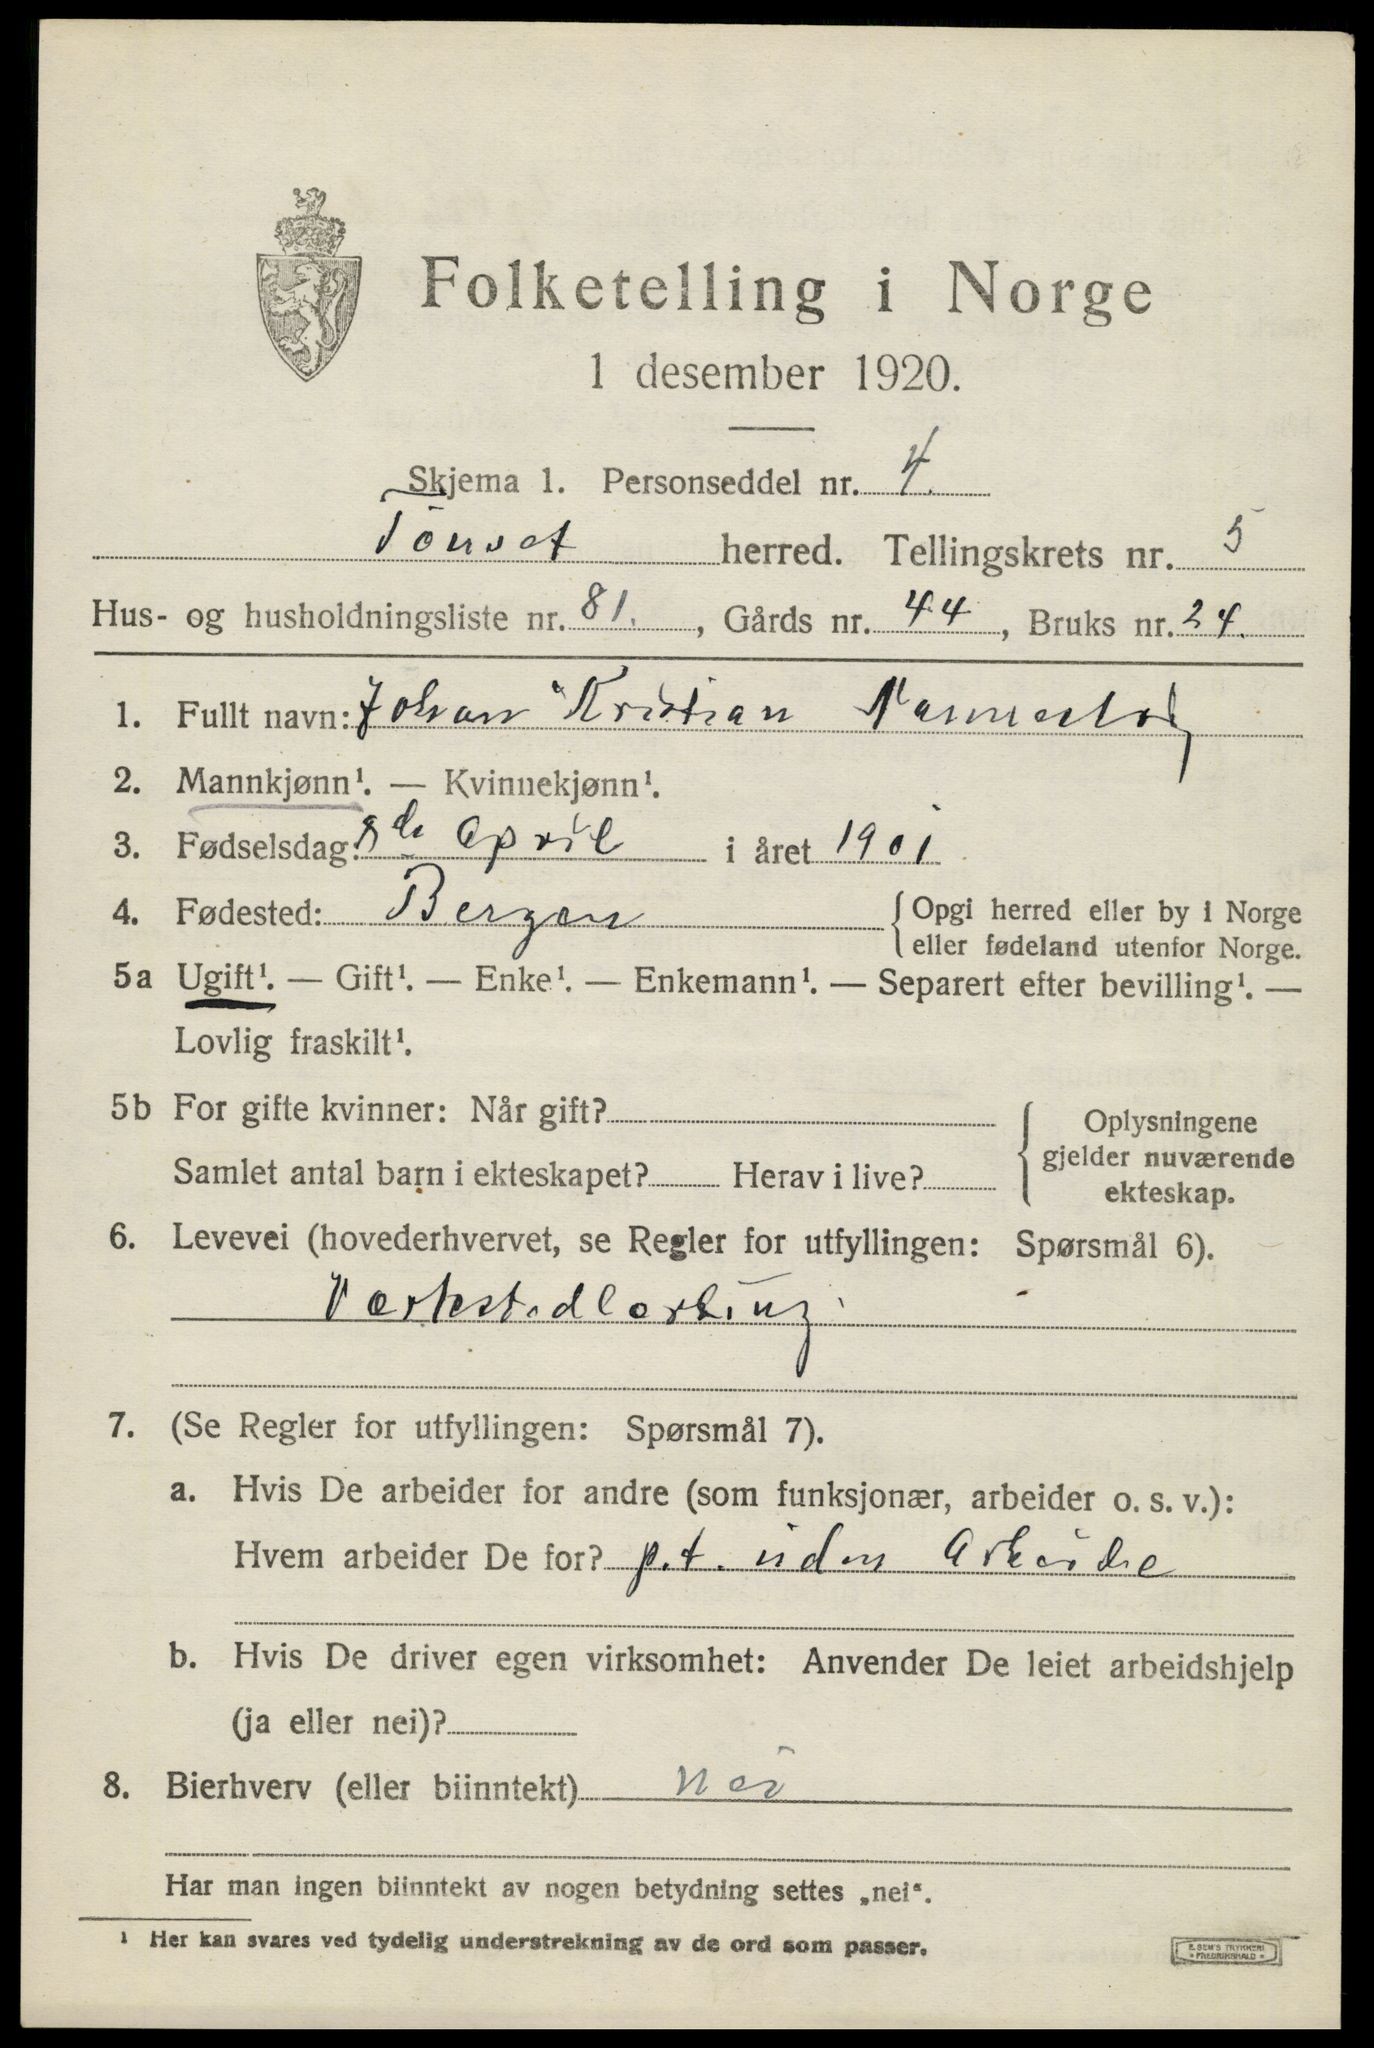 Folketelling i Norge
1 desember 1920.
Skjema 1. Personseddel nr. 4.
Tönset herred. Tellingskrets nr. 5
Hus- og husholdningsliste nr. 81. , Gårds nr. 44 , Bruks nr. 24.
1. Fullt navn: Johan Kristian
2. Mannkjønn¹. — Kvinnekjønn¹.
3. Fødselsdag: 8de April i året 1901
4. Fødested: Bergen {Opgi herred eller by i Norge
eller fødeland utenfor Norge.
5a Ugift¹. — Gift¹. — Enke¹. — Enkemann¹. — Separert efter bevilling¹. —
Lovlig fraskilt¹.
5b For gifte kvinner: Når gift? Oplysningene
gjelder nuværende
Samlet antal barn i ekteskapet? Herav i live?
ekteskap.
6. Levevei (hovederhvervet, se Regler for utfyllingen: Spørsmål 6).
7. (Se Regler for utfyllingen: Spørsmål 7).
a. Hvis De arbeider for andre (som funksjonær, arbeider o. s. v.):
Hvem arbeider De for? p.t. uden Arbeide
b. Hvis De driver egen virksomhet: Anvender De leiet arbeidshjelp
(ja eller nei)?
8. Bierhverv (eller biinntekt) nei
Har man ingen biinntekt av nogen betydning settes „nei“.
¹ Her kan svares ved tydelig understrekning av de ord som passer.
E. SEM'S TRYKKERI
FREDRIKSHALD